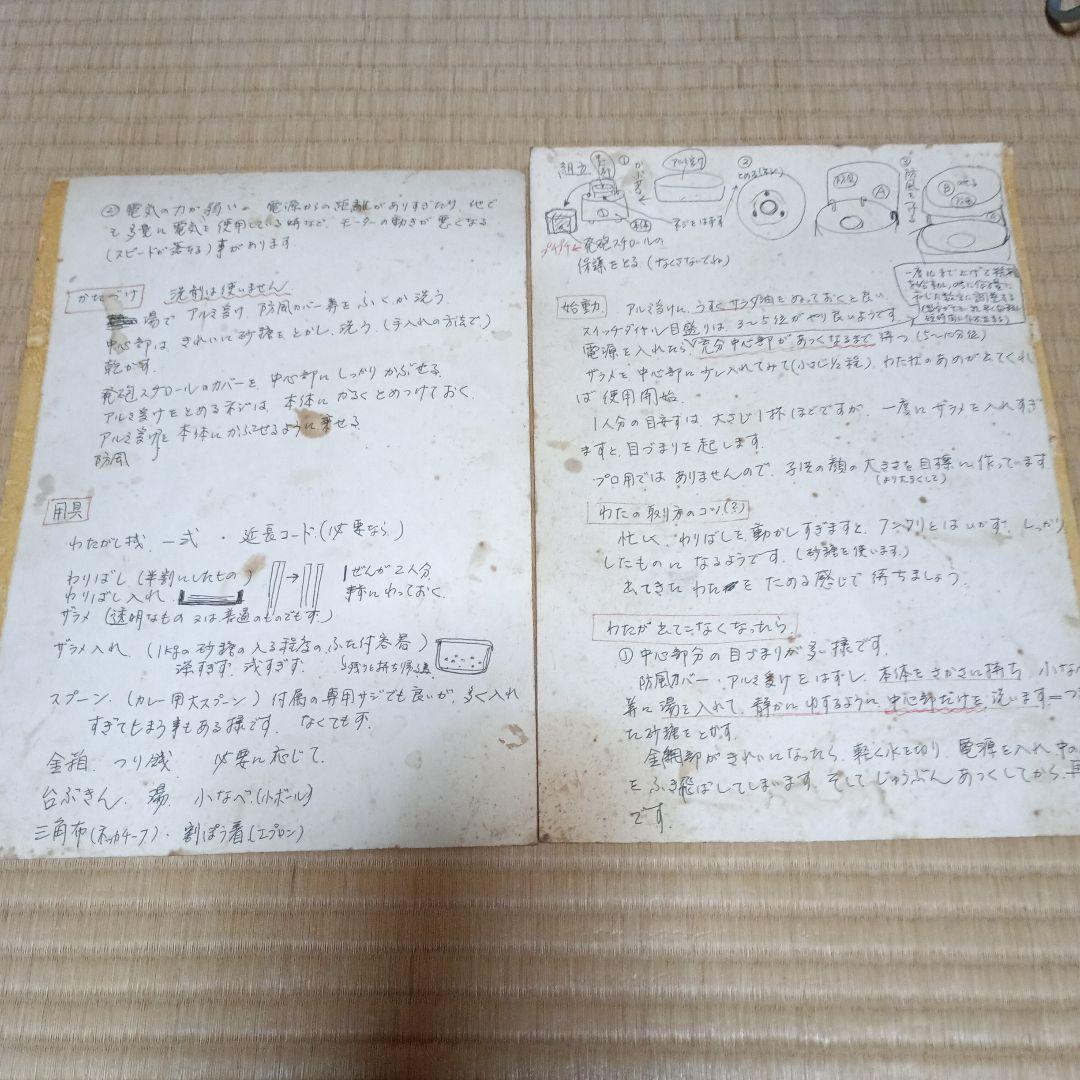 ② 電気の力が弱い。電源からの距離がありすぎたり、他で
も多量に電気を使用している時など、モーターの動きが悪くなる
(スピードが落ちる)事があります。
かたづけ 洗剤は使いません
湯で アルミ受け、防風カバー等をふくか洗う。
中心部は きれいに砂糖をとかし、洗う。(手入れの方法で)
乾かす。
発砲スチロールのカバーを、中心部にしっかりかぶせる。
アルミ受けをとめるネジは、本体にかるくとめつけておく。
アルミ受けを本体にかぶせるように乗せる。
防風
用具
わたがし機 一式 ・ 延長コード(必要なら)
わりばし(半割にしたもの) 1ぜんが2人分。
わりばし入れ 事前にわっておく。
ザラメ(透明なもの 又は、普通のものでも可)
ザラメ入れ (1kgの砂糖の入る程度の、ふた付容器)
深すぎず、浅すぎず。
スプーン、(カレー用大スプーン) 付属の専用サジでも良いが、多く入れ
すぎてしまう事もある様です。なくても可。
金箱、つり銭、 必要に応じて。
台ぶきん、湯、小なべ(小ボール)
三角布(ネッカチーフ)・割ぽう着(エプロン)
組立 ① かぶせる アルミ受け ② とめる(ネジ) ③ 防風をする
防風 Ⓐ Ⓑ のせる
本体 ネジをはずす
プチプチ← 発砲スチロールの
保護をとる(なくさないでね)
始動 アルミ受けに、うすくサラダ油をぬっておくと良い
スイッチダイヤル目盛りは、3~5位がやり良いようです。
電源を入れたら、充分中心部が、あつくなるまで待つ(5~10分位)
ザラメを中心部に少し入れてみて(小さじ1/2程)、わた状のあめが出てくれ
ば使用開始。
1人分の目安は、大さじ1杯ほどですが、一度にザラメを入れすぎ
ますと、目づまりを起します。
プロ用ではありませんので、子供の顔の大きさを目標に作っています
(より大きくして)
わたの取り方のコツ(?)
忙しく、わりばしを動かしすぎますと、フンワリとはいかず、しっかり
したものに なるようです。(砂糖を使います。)
出てきた わたを ためる感じで 待ちましょう。
わたが出てこなくなったら
① 中心部分の目づまりが多い様です。
防風カバー・アルミ受けをはずし、本体をさかさに持ち 小な
等に湯を入れて、静かにゆするように中心部だけを、洗います=つ
た砂糖をとかす。
金網部がきれいになったら、軽く水を切り、電源を入れ 中の
をふき飛ばしてしまいます。そしてじゅうぶんあつくしてから、再
です。